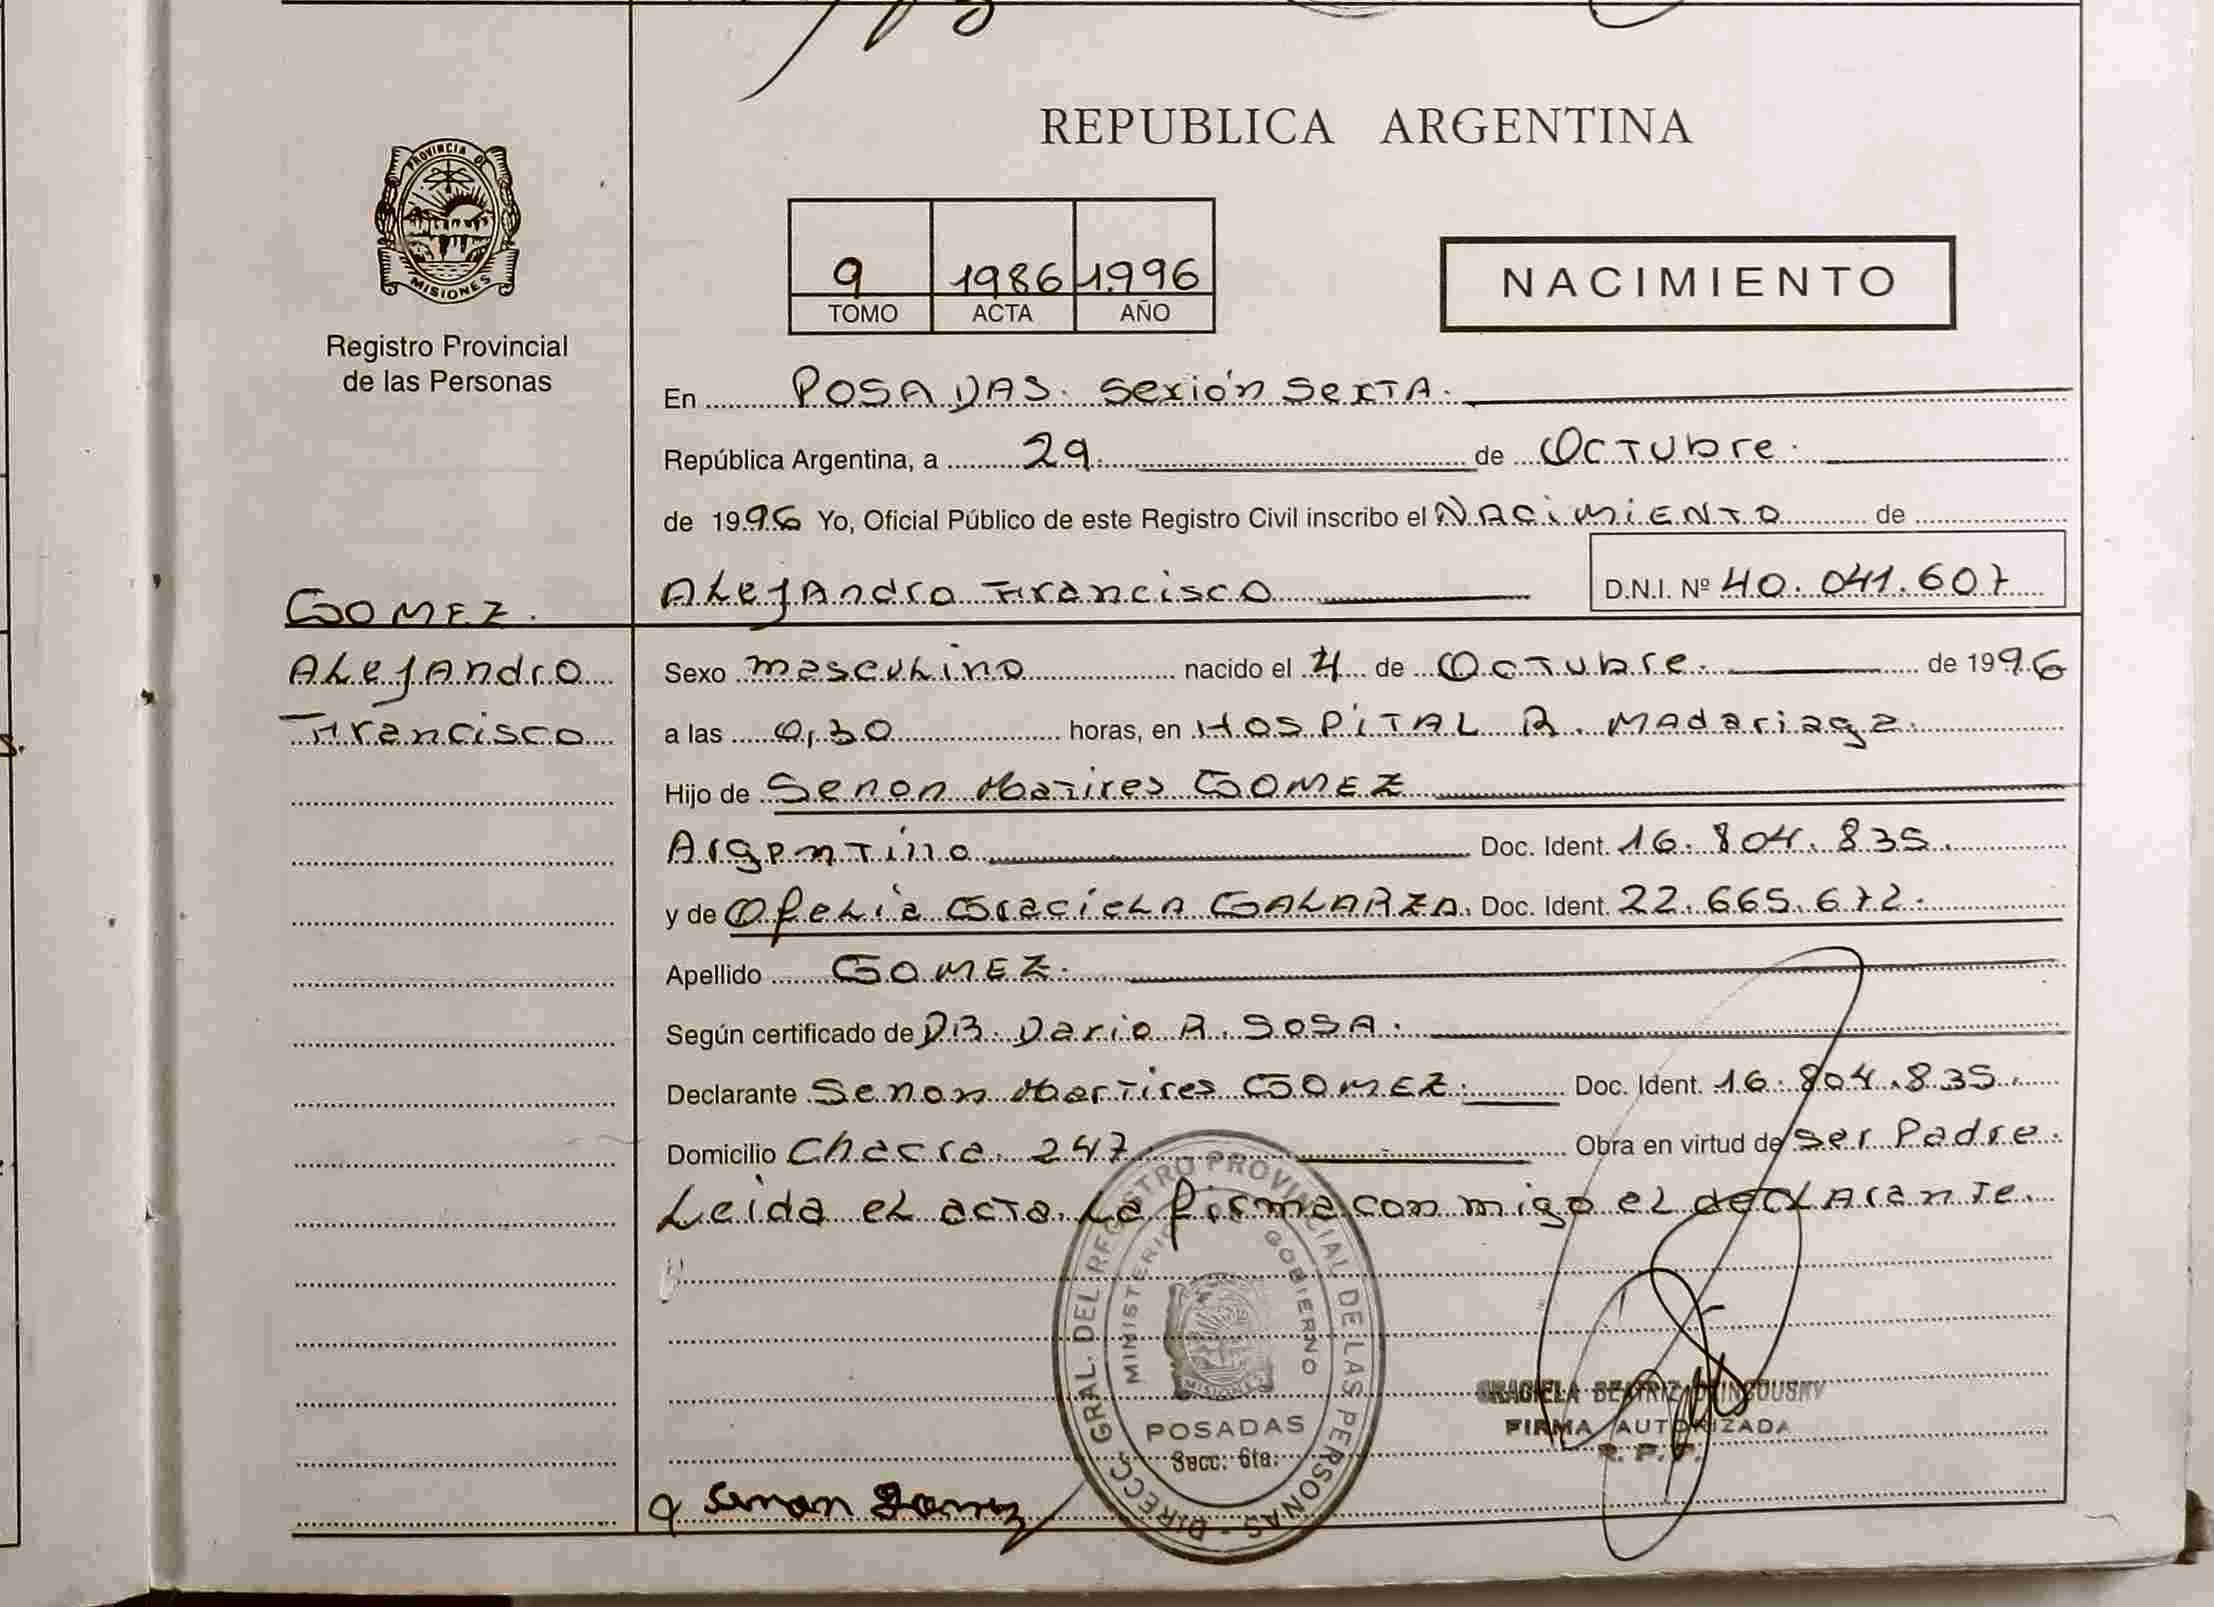 REPUBLICA ARGENTINA
PROVINCIA DE
MISIONES
Registro Provincial
de las Personas
9 1986 1.996
TOMO ACTA AÑO
NACIMIENTO
En POSADAS. Sexión SexTA.
República Argentina, a 29 de OcTubre.
de 1996 Yo, Oficial Público de este Registro Civil inscribo el NACiMiENTO de
GOMEZ.
ALejAndro Francisco D.N.I. Nº 40.041.607
ALejAndro
Francisco
Sexo mascuLino nacido el 4 de OcTubre. de 1996
a las 0,30 horas, en HOSPiTAL R. MAdariaga.
Hijo de Senon Martires GOMEZ
ArgenTino Doc. Ident. 16.804.835.
y de OfeLia GracieLA GALARZA. Doc. Ident. 22.665.672.
Apellido GOMEZ.
Según certificado de DR. Dario R. SOSA.
Declarante Senon Martires GOMEZ. Doc. Ident. 16.804.835.
Domicilio Chacra. 247 Obra en virtud de ser Padre.
Leida eL acta. La firma con migo eL decLArante.
DIRECC. GRAL. DEL REGISTRO PROVINCIAL DE LAS PERSONAS -
MINISTERIO GOBIERNO
MISIONES
POSADAS
Secc. 6ta.
GRACIELA BEATRIZ
FIRMA AUTORIZADA
R. P. P.
Senon Gomez